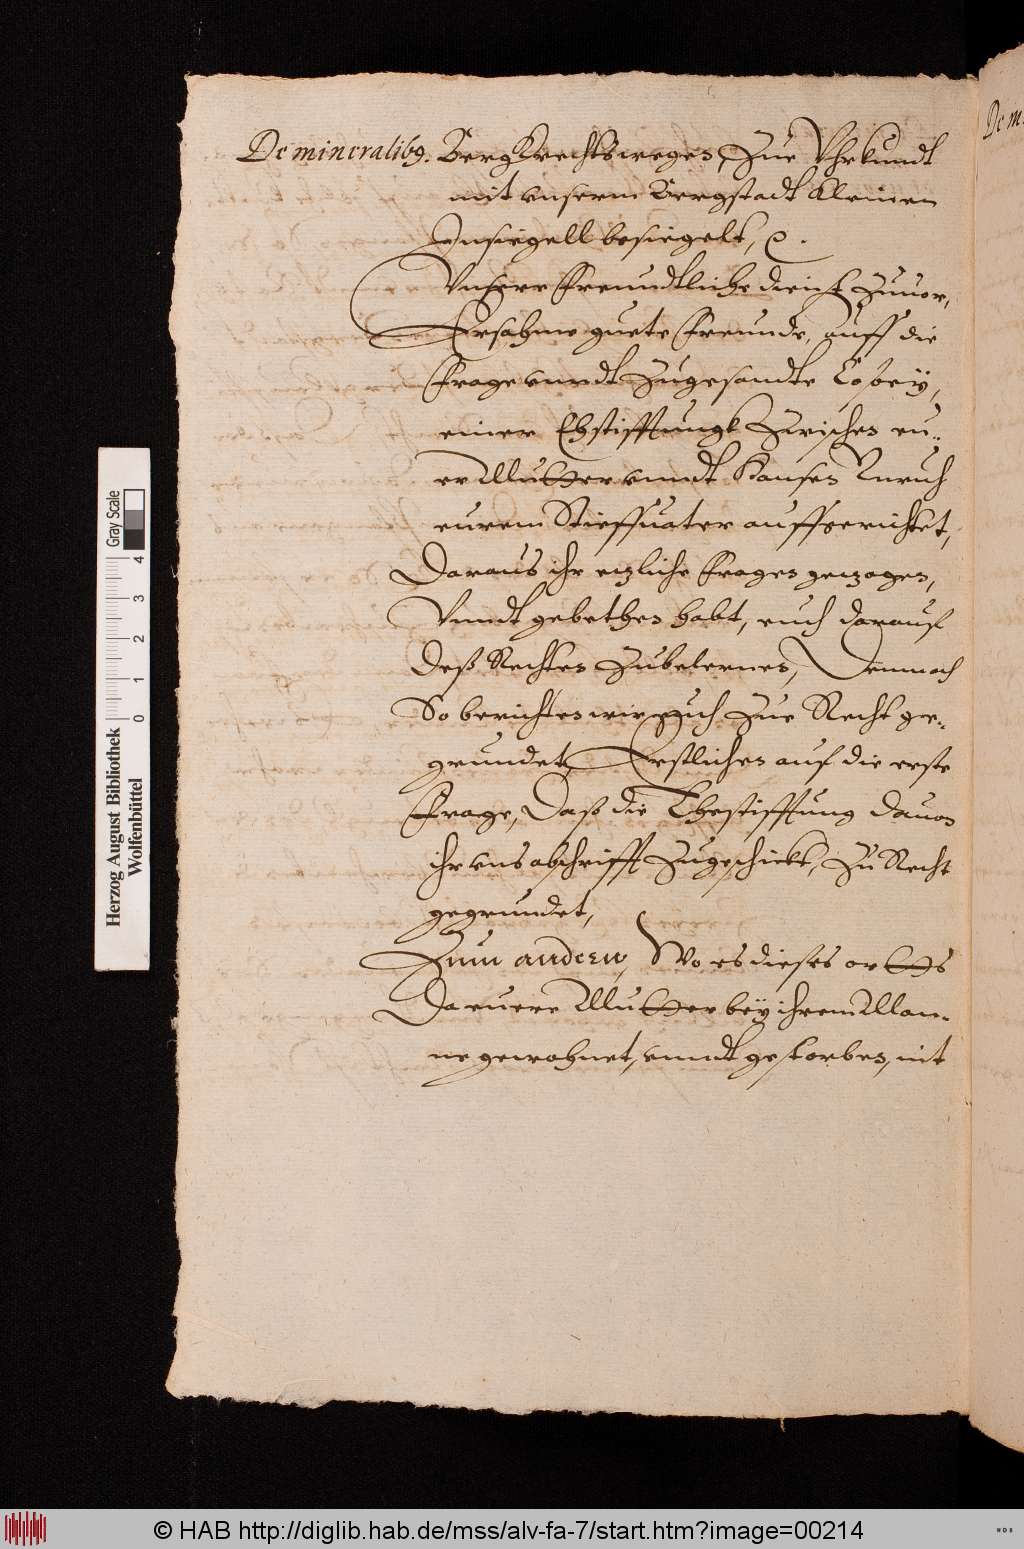 De mineralibꝯ. BergRechtswegen, Zue Vhrkundt
mit vnserm Bergstadt kleinen
Insiegell besiegelt, ꝛc.
Vnsere freundtliche dienst Zuuor,
Ersahme guete freunde, auff die
frage vnndt Zugesandte Copey,
einer Ehstifftungk Zwischen eu„
er Mutter vnndt Hansen
eurem Stieffuater auffgerichtet,
Daraus ihr etzliche fragen gezogen,
Vnndt gebethen habt, euch darauf
deß Rechten Zubelernen, Demnach
So berichten wir euch Zue Recht ge„
grundet, Erstlichen auf die erste
frage, Daß die Ehestifftung dauon
ihr vns abschrifft Zugeschickt, Zu Recht
gegrundet,
Zum andern, Wo es dieses orths
Da euere Mutter bey ihrem Man„
ne gewohnet, vnndt gestorben, mit
De m
Herzog August Bibliothek
Wolfenbüttel
0 1 2 3 4
Gray Scale
© HAB http://diglib.hab.de/mss/alv-fa-7/start.htm?image=00214